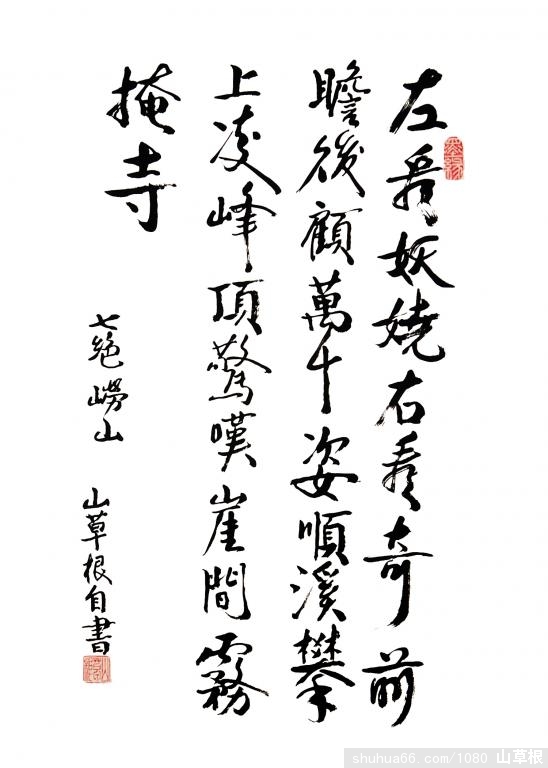 左看妖嬈右看奇前
瞻後顧萬千姿順溪攀
上凌峰頂驚嘆崖間霧
掩寺
七絕嶗山 山草根自書
shuhua66 . com/1080 山草根